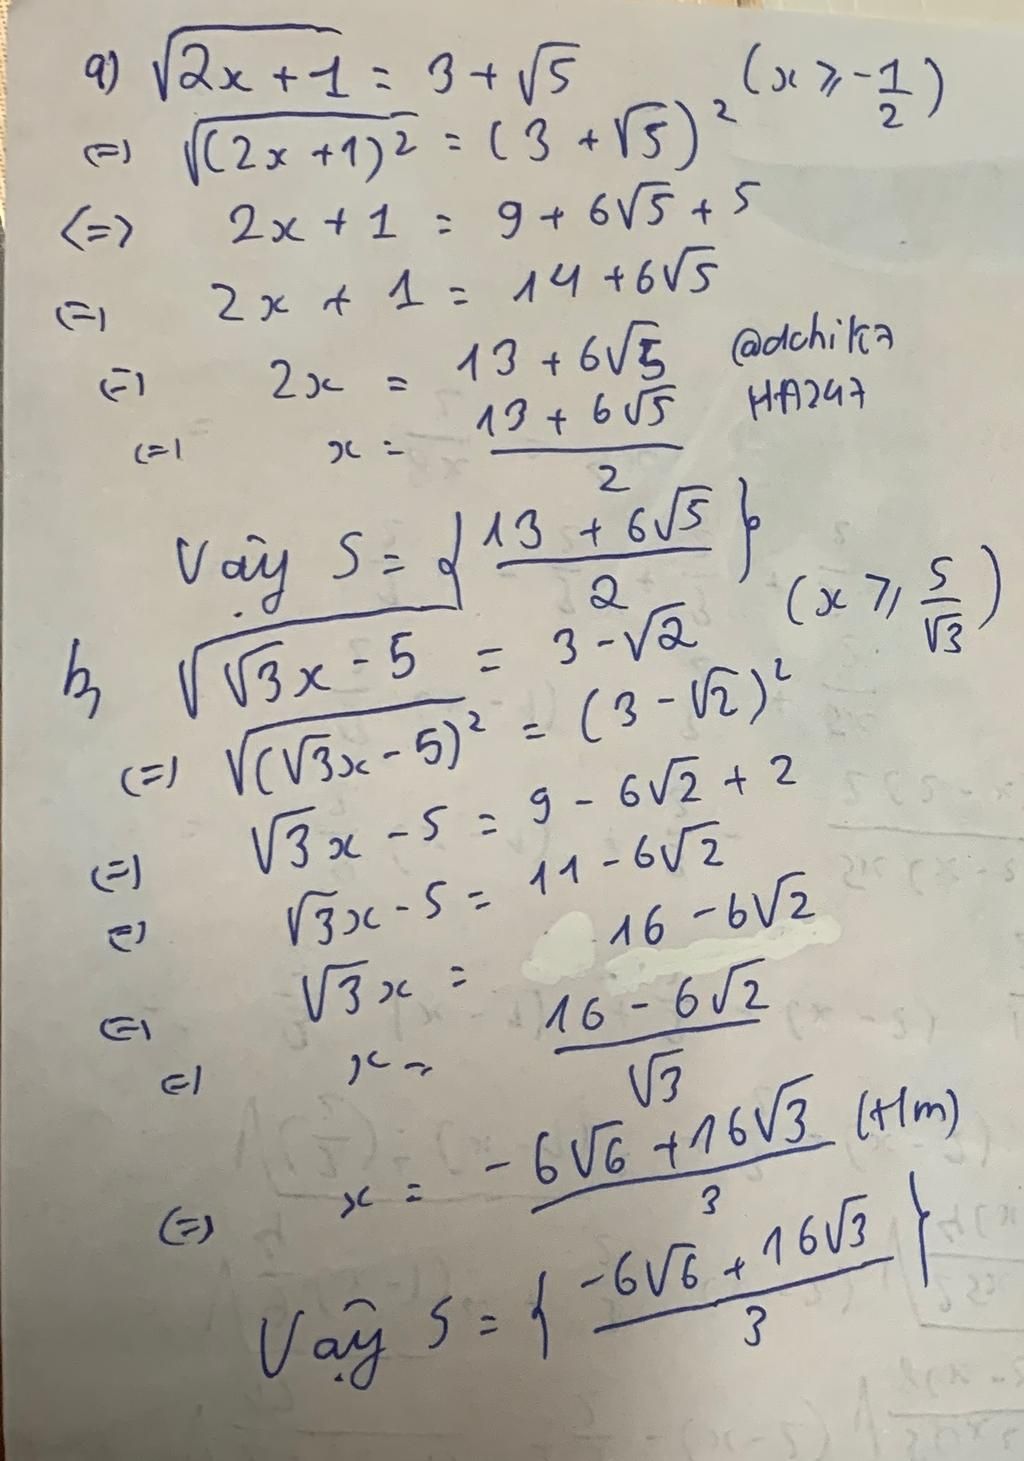 a) √(2x+1) = 3 + √5 (x ⩾ -1/2)
(=) √((2x+1)²) = (3 + √5)²
<=> 2x + 1 = 9 + 6√5 + 5
(=) 2x + 1 = 14 + 6√5
(=) 2x = 13 + 6√5 @dchik7
(=) x = (13 + 6√5)/2 HA247
Vậy S = { (13 + 6√5)/2 }
b, √(√3x - 5) = 3 - √2 (x ⩾ 5/√3)
(=) √((√3x - 5)²) = (3 - √2)²
(=) √3x - 5 = 9 - 6√2 + 2
(=) √3x - 5 = 11 - 6√2
(=) √3x = 16 - 6√2
(=) x = (16 - 6√2)/√3
(=) x = (-6√6 + 16√3)/3 (t/m)
Vậy S = { (-6√6 + 16√3)/3 }